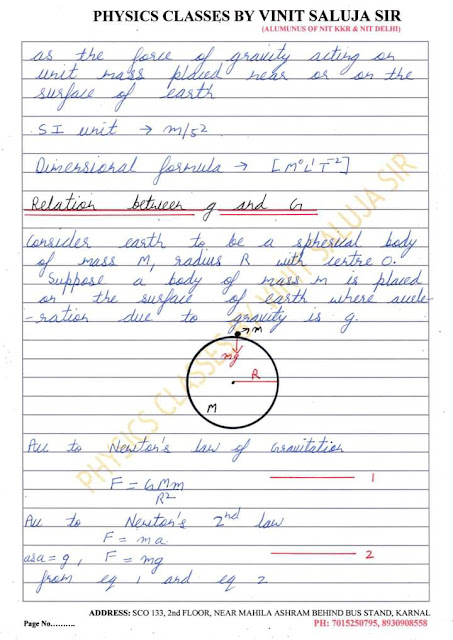 PHYSICS CLASSES BY VINIT SALUJA SIR
(ALUMUNUS OF NIT KKR & NIT DELHI)
as the force of gravity acting on
unit mass placed near or on the
surface of earth
SI unit → m/s²
Dimensional formula → [M⁰L¹T⁻²]
Relation between g and G
Consider earth to be a spherical body
of mass M, radius R with centre O.
Suppose a body of mass m is placed
on the surface of earth where accele-
-ration due to gravity is g.
→ m
mg
R
M
PHYSICS CLASSES BY VINIT SALUJA SIR
Acc to Newton's law of Gravitation
F = GMm/R² — 1
Acc to Newton's 2nd law
F = ma
as a = g, F = mg — 2
from eq 1 and eq 2
ADDRESS: SCO 133, 2nd FLOOR, NEAR MAHILA ASHRAM BEHIND BUS STAND, KARNAL
Page No.......... PH: 7015250795, 8930908558